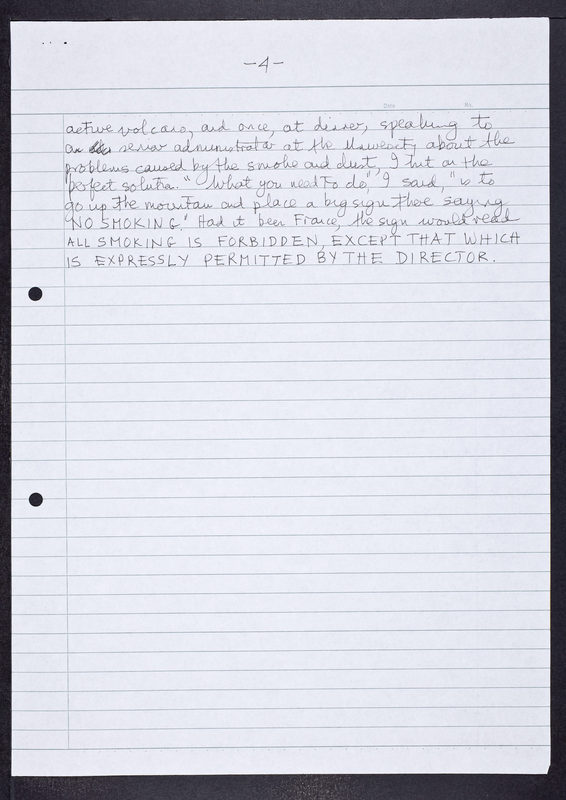 -4-
Date No.
active volcano, and once, at dinner, speaking to
a senior administrator at the University about the
problems caused by the smoke and dust, I hit on the
perfect solution. "What you need to do," I said, "is to
go up the mountain and place a big sign there saying
NO SMOKING." Had it been France, the sign would read
ALL SMOKING IS FORBIDDEN, EXCEPT THAT WHICH
IS EXPRESSLY PERMITTED BY THE DIRECTOR.